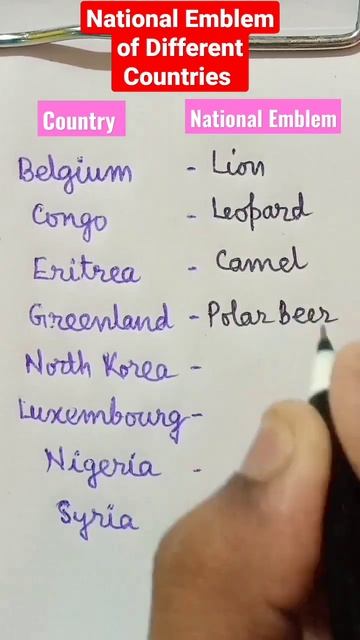 National Emblem
of Different
Countries
Country National Emblem
Belgium - Lion
Congo - Leopard
Eritrea - Camel
Greenland - Polar Beer
North Korea -
Luxembourg -
Nigeria -
Syria